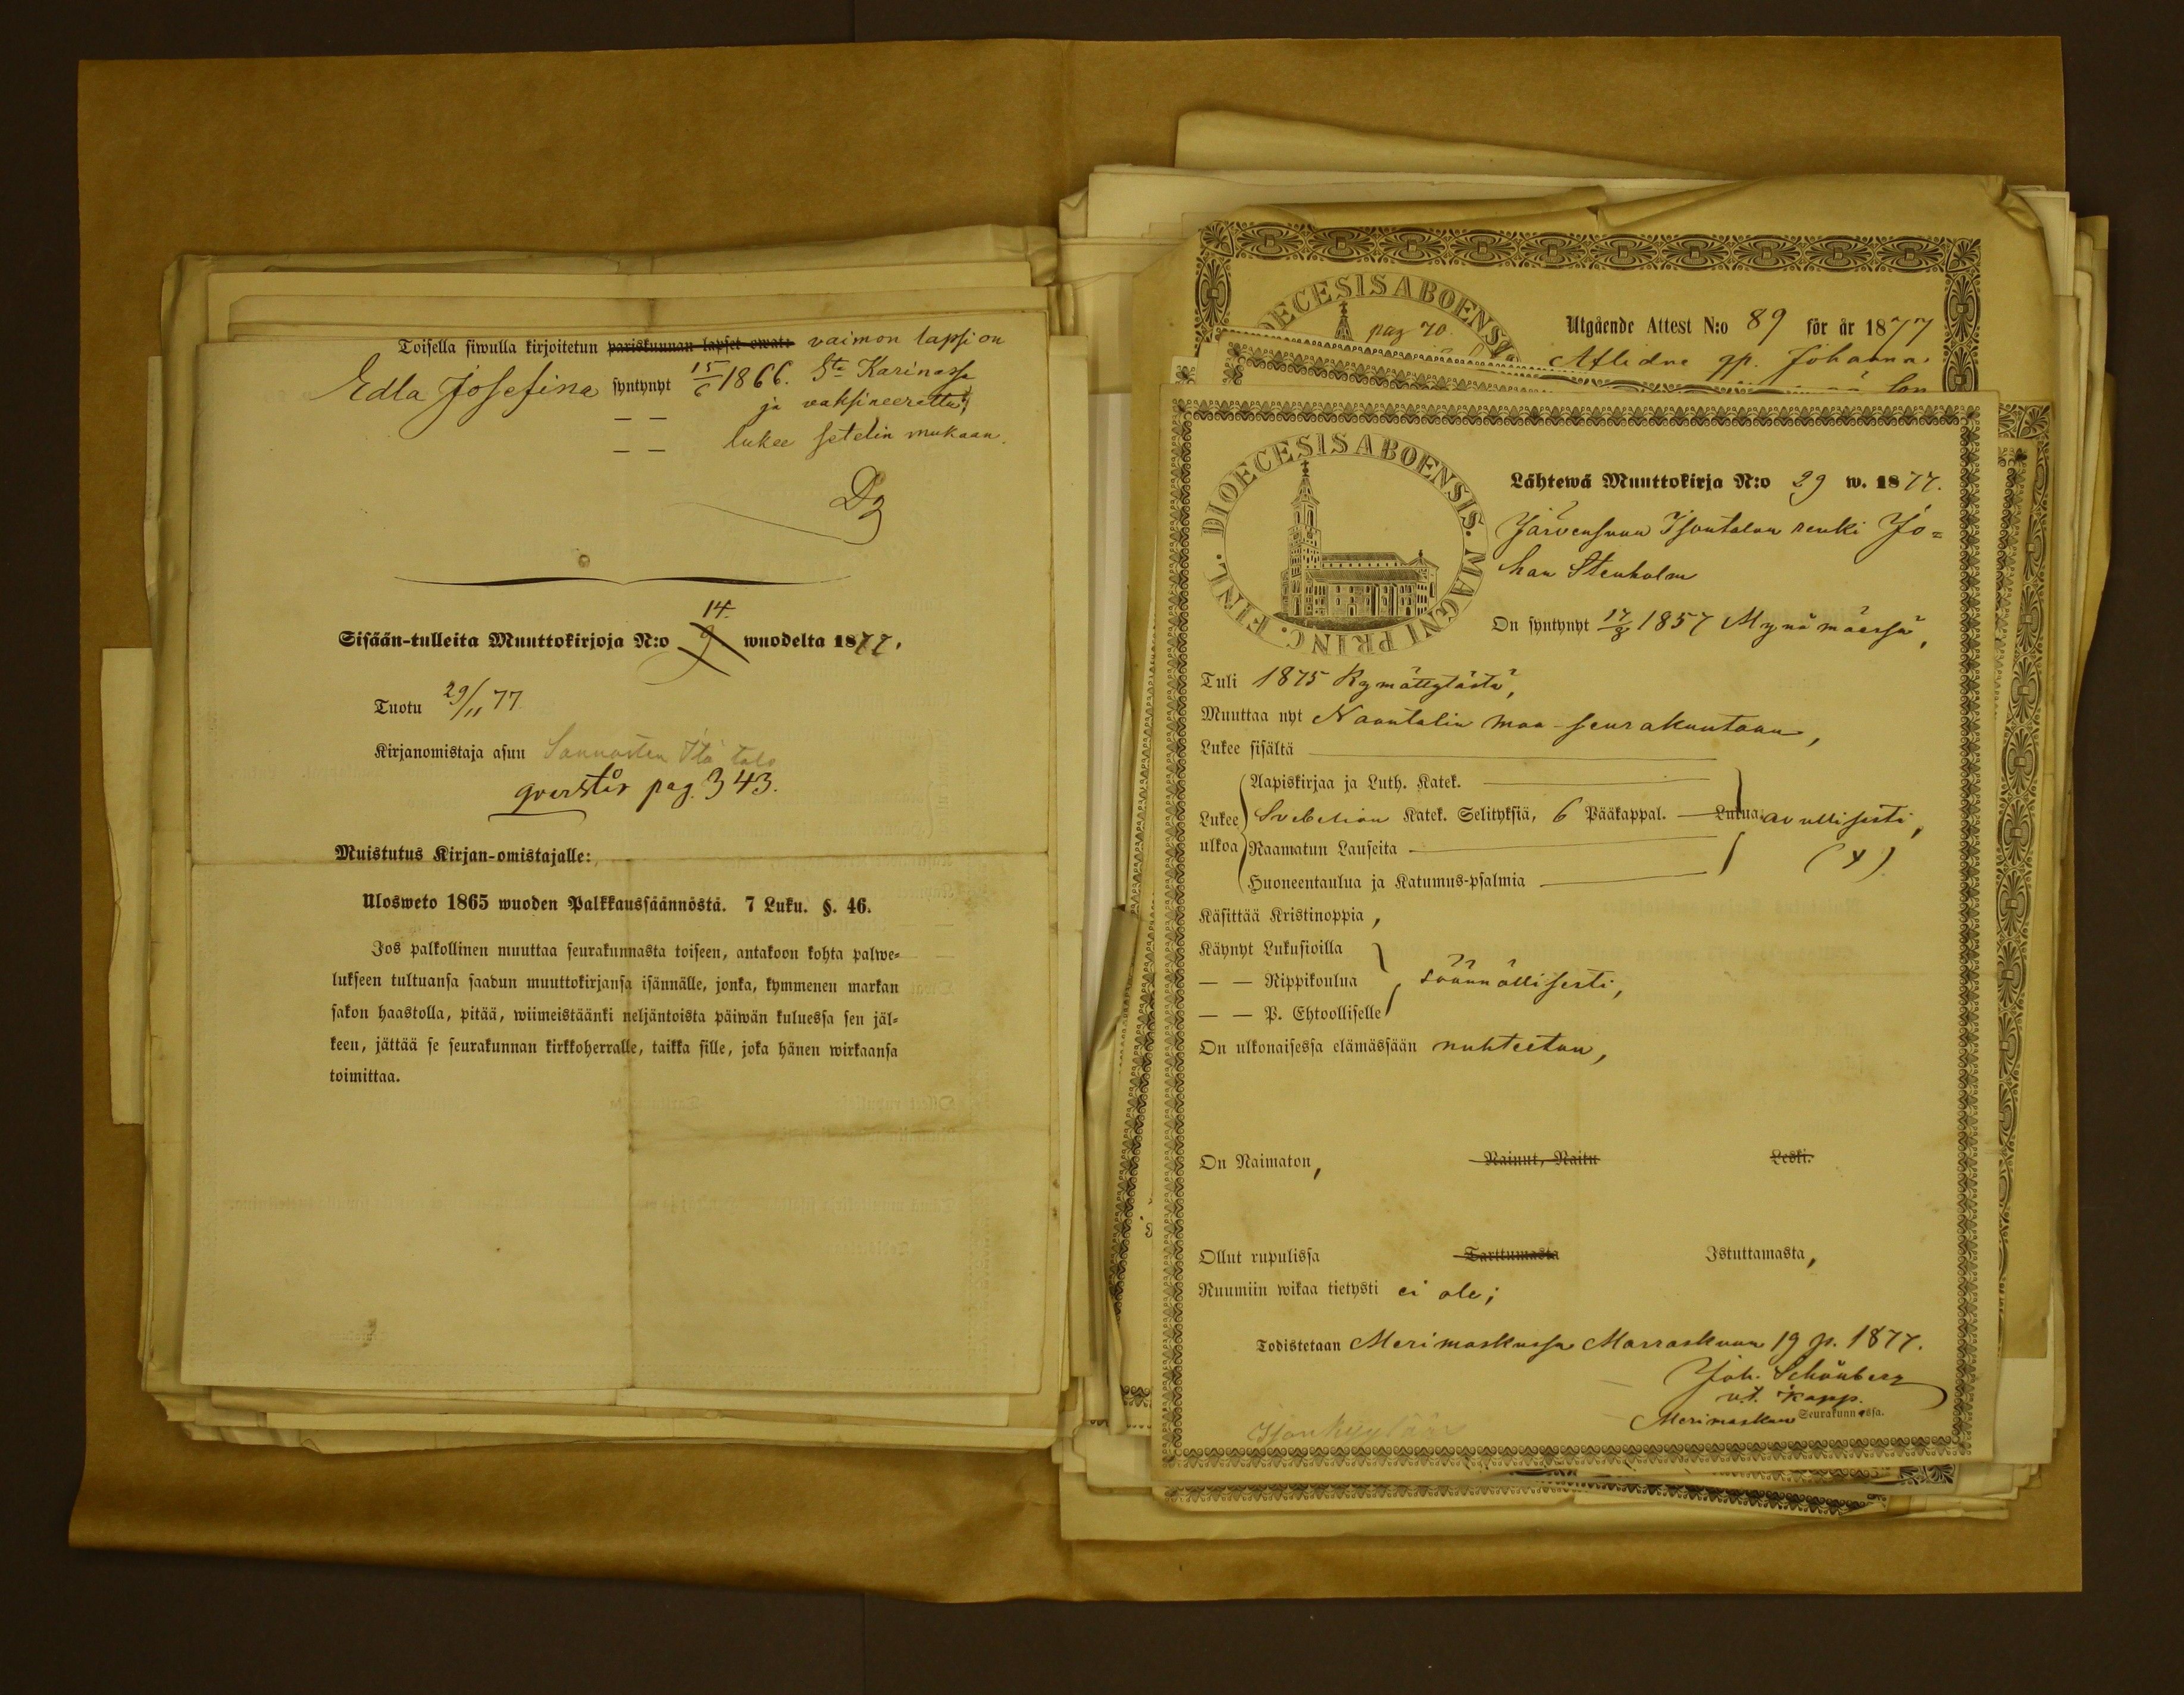 Toisella siwulla kirjoitetun pariskunnan lapset owat: vaimon lapsi on
Edla Josefina syntynyt 15/6 1866. Sta Karinassa
— — ja vaksineerattu;
— — lukee setelin mukaan.
Sisään-tulleita Muuttokirjoja N:o 9 14. wuodelta 1877.
Tuotu 29/11 77.
Kirjanomistaja asuu Sannasten Itä talo
qvarstår pag. 343.
Muistutus Kirjan-omistajalle:
Ulosweto 1865 wuoden Palkkaussäännöstä. 7 Luku. §. 46.
Jos palkollinen muuttaa seurakunnasta toiseen, antakoon kohta palwe=
lukseen tultuansa saadun muuttokirjansa isännälle, jonka, kymmenen markan
sakon haastolla, pitää, wiimeistäänki neljäntoista päiwän kuluessa sen jäl=
keen, jättää se seurakunnan kirkkoherralle, taikka sille, joka hänen wirkaansa
toimittaa.
DECESIS ABOENS
pag 70.
Utgående Attest N:o 89 för år 1877
Aflidne gp. Johanna
FINL. DIOECESIS ABOENSIS. MAGNI PRINC.
Lähtewä Muuttokirja N:o 29 w. 1877.
Järvensuun Isontalon renki Jo=
han Stenholm
On syntynyt 17/8 1857 Mynämäessä,
Tuli 1875 Rymättylästä,
Muuttaa nyt Naantalin maa-seurakuntaan,
Lukee sisältä
Lukee ulkoa
Aapiskirjaa ja Luth. Katek.
Svebelion Katek. Selityksiä, 6 Pääkappal. Lukua: avullisesti,
Raamatun Lauseita
Huoneentaulua ja Katumus-psalmia
Käsittää Kristinoppia,
Käynyt Lukusioilla
— — Rippikoulua säännöllisesti,
— — P. Ehtoolliselle
On ulkonaisessa elämässään nuhteeton,
On Naimaton, Nainut, Naitu Leski.
Ollut rupulissa Tarttumasta Istuttamasta,
Ruumiin wikaa tietysti ei ole;
Todistetaan Merimaskussa Marraskuun 19 p. 1877.
Joh. Schönberg
v.t. Kapp.
Merimaskun Seurakunnassa.